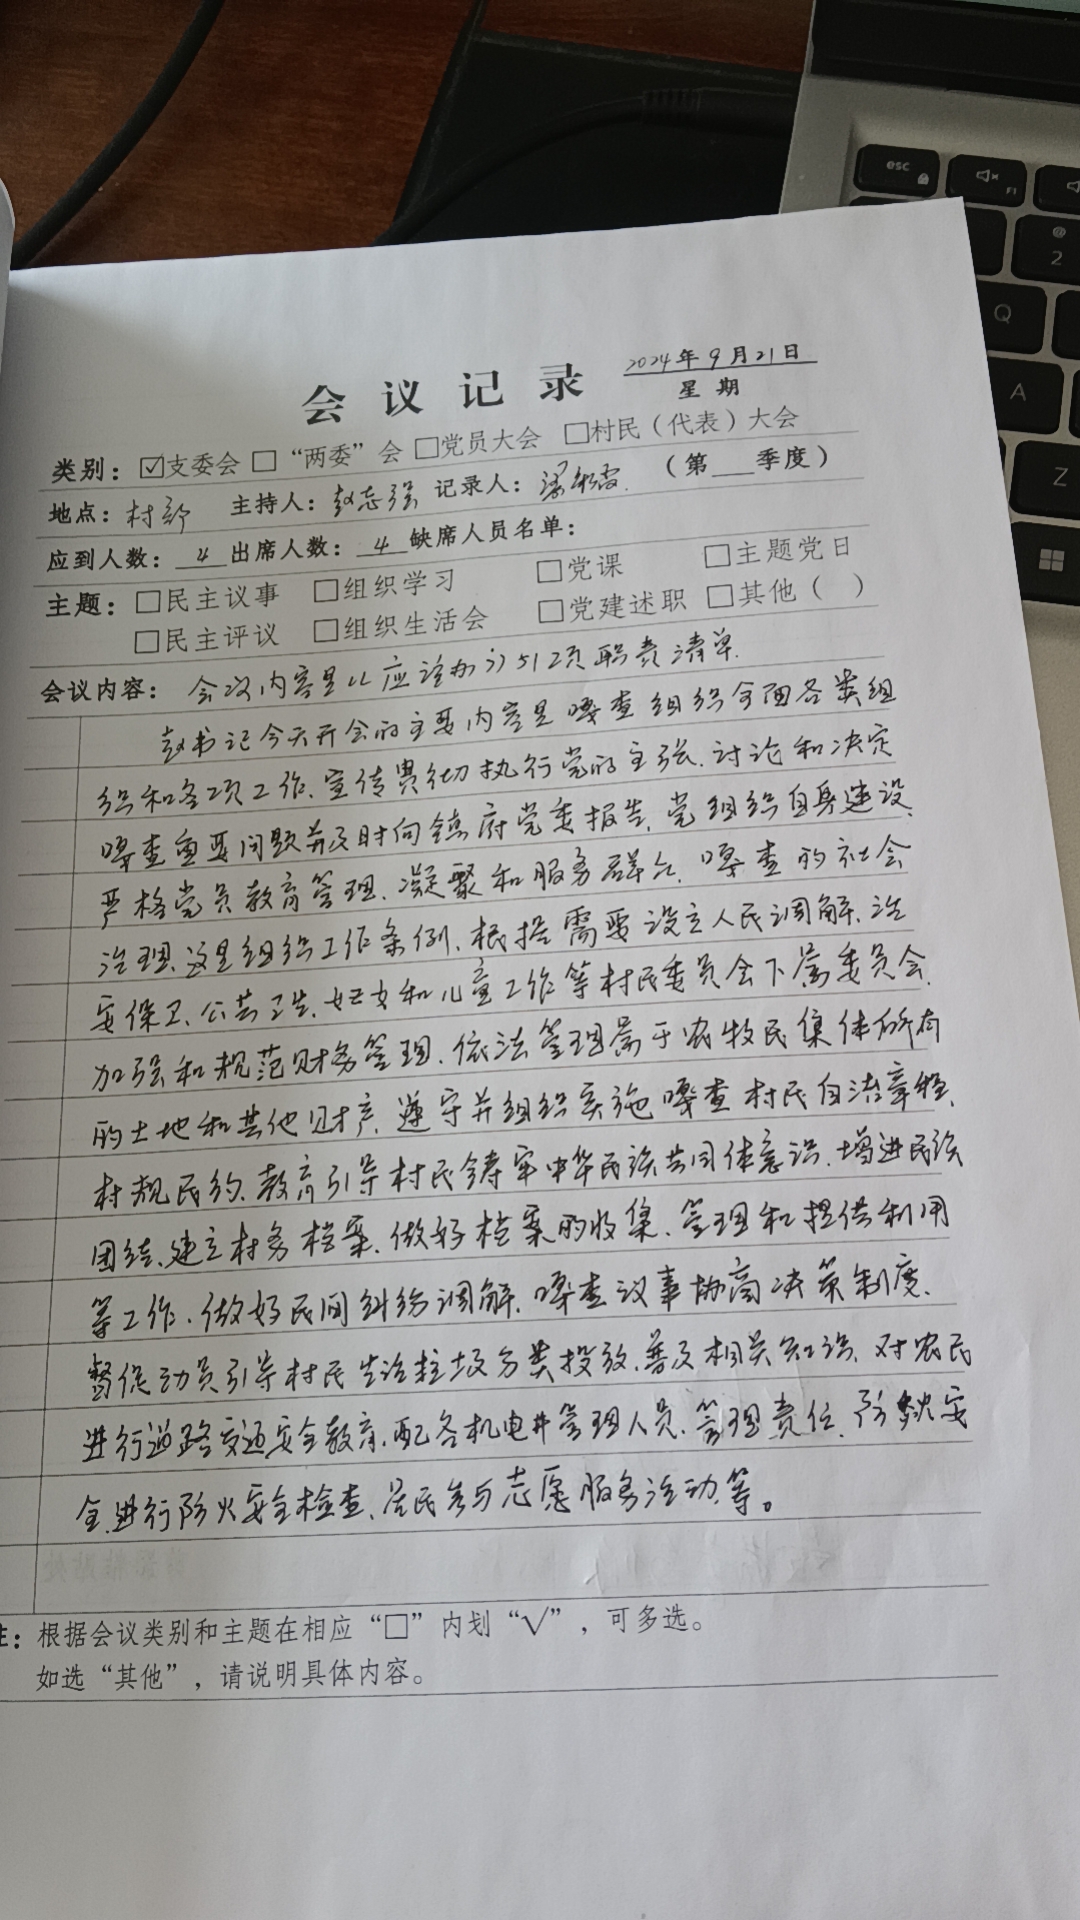 会议记录
2024年9月21日
星期
类别：☑支委会 □“两委”会 □党员大会 □村民（代表）大会
地点：村部 主持人：赵志强 记录人： （第 季度）
应到人数：4 出席人数：4 缺席人员名单：
主题：□民主议事 □组织学习 □党课 □主题党日
□民主评议 □组织生活会 □党建述职 □其他（ ）
会议内容：会议内容是以应该办 51项职责清单.
赵书记今天开会的主要内容是嘎查组织全面各类组
织和各项工作、宣传贯彻执行党的主张、讨论和决定
嘎查重要问题并及时向镇府党委报告、党组织自身建设、
严格党员教育管理、凝聚和服务群众、嘎查的社会
治理、这是组织工作条例、根据需要设立人民调解、治
安保卫、公共卫生、妇女和儿童工作等村民委员会下属委员会、
加强和规范财务管理、依法管理属于农牧民集体所有
的土地和其他财产、遵守并组织实施嘎查村民自治章程、
村规民约、教育引导村民铸牢中华民族共同体意识、增进民族
团结、建立村务档案、做好档案的收集、管理和提供利用
等工作、做好民间纠纷调解、嘎查议事协商决策制度、
督促动员引导村民生活垃圾分类投放、普及相关知识、对农民
进行道路交通安全教育、配备机电井管理人员、管理责任、防 安
全、进行防火安全检查、居民参与志愿服务活动、等。
注：根据会议类别和主题在相应“□”内划“√”，可多选。
如选“其他”，请说明具体内容。
esc
F1
@
2
Q
A
Z